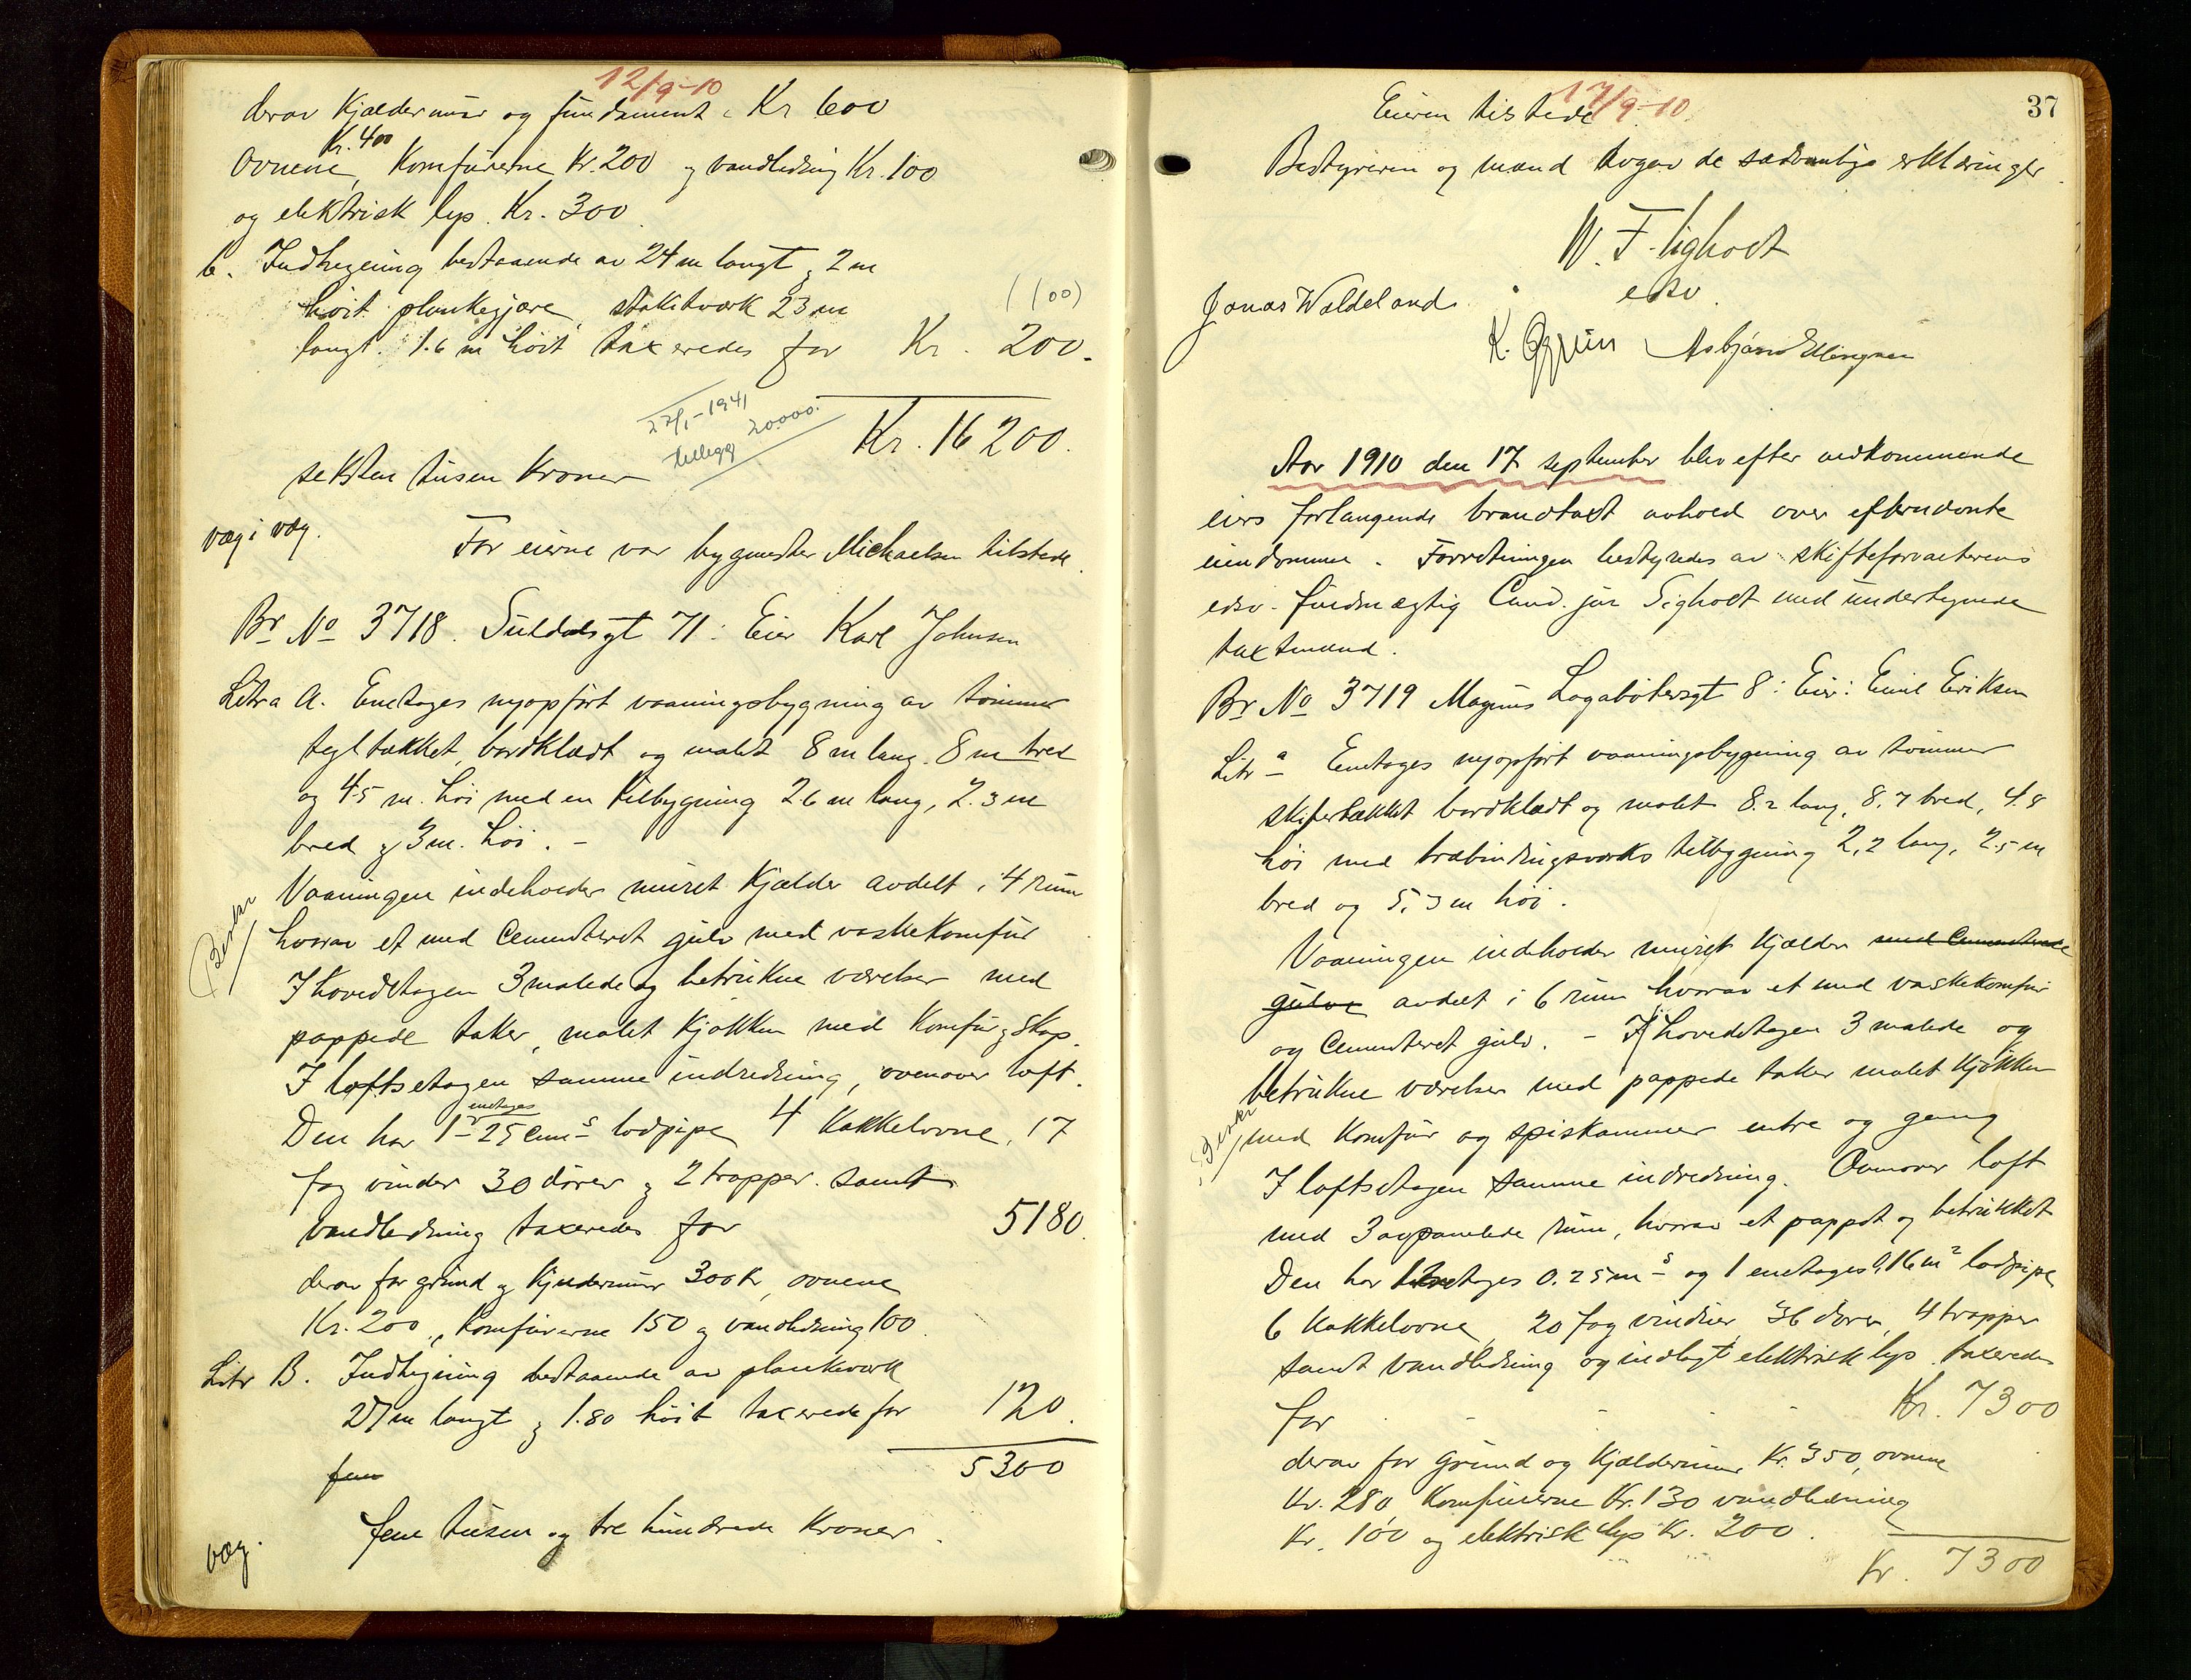 12/9-10
derav Kjældermur og fundament Kr 600
Kr. 400
Ovnene, Komfurerne Kr. 200 og vandledning Kr. 100
og elektrisk lys Kr. 300
b. Indhegning bestaaende av 24 m langt og 2 m
høit plankegjære, stakitværk 23 m
(100)
langt. 1.6 m høit taxeredes for Kr. 200.
Kr. 16 200.
22/1-1941
tillegg 20.000.
seksten tusen Kroner
væg i væg.
For eierne var bygmester Michaelsen tilstede.
Br No 3718. Suldalsgt 71: Eier Karl Johnsen
Litra A. Enetages nyopført vaaningsbygning av tømmer
tegltækket, bordklædt og malet 8 m lang. 8 m bred
og 4.5 m. høi med en tilbygning 2.6 m lang, 2.3 m
bred og 3 m. høi. -
Vaaningen indeholder muret Kjælder avdelt i 4 rum
hvorav et med Cementeret gulv med vaskekomfur
I hovedetagen 3 malede og betrukne værelser med
pappede taker, malet Kjøkken med Komfur og Skap.
I loftsetagen samme indredning, ovenover loft.
Den har 1 enetages 25 cm s lodpipe 4 Kakkelovne, 17
fag vinder 30 dører og 2 trapper. samt
vandledning taxeredes for 5180.
derav for grund og Kjældermur 300 Kr, ovnene
Kr. 200, Komfurerne 150 og vandledning 100.
Litr B. Indhegning bestaaende av plankeværk
27 m langt og 1.80 høit taxerede for 120.
5300
fem
fem tusen og tre hundrede Kroner.
væg.
37
17/9-10
Eieren tilstede
Bestyreren og mænd avgav de sædvanlige erklæringer.
W. F. Sigholt
edsv.
Jonas Waldeland.
Asbjørn Ellingsen
Aar 1910 den 17 september blev efter vedkommende
eiers forlangende brandtaxt avholdt over efternævnte
eiendomme. Forretningen bestyredes av skifteforvalterens
edsv. fuldmægtig Cand. jur Sigholt med undertegnede
taxtmænd.
Br No 3719 Magnus Lagabøtersgt 8: Eier: Emil Eriksen
Litr a Enetages nyopført vaaningsbygning av tømmer
skifertækket bordklædt og malet 8.2 lang, 8.7 bred, 4.8
høi med træbindingsværks tilbygning 2,2 lang, 2.5 m
bred og 5,3 m høi.
Vaaningen indeholder muret Kjælder med Cementerede
gulve avdelt i 6 rum hvorav et med vaskekomfur
og Cementeret gulv. - I hovedetagen 3 malede og
betrukne værelser med pappede taker malet Kjøkken
med Komfur og spiskammer entre og gang
I loftsetagen samme indredning. Ovenover loft
med 3 avpanelede rum, hvorav et pappet og betrukket
Den har 1 enetages 0.25 m s og 1 enetages 0,16 m2 lodpipe
6 Kakkelovne, 20 fag vinduer, 36 dører, 4 trapper
samt vandledning og indlagt elektrisk lys. taxeredes
for Kr. 7300
derav for grund og Kjældermur Kr. 350, ovnene
Kr. 280, Komfurerne Kr. 130 vandledning
Kr. 100 og elektrisk lys Kr. 200.
Kr. 7300